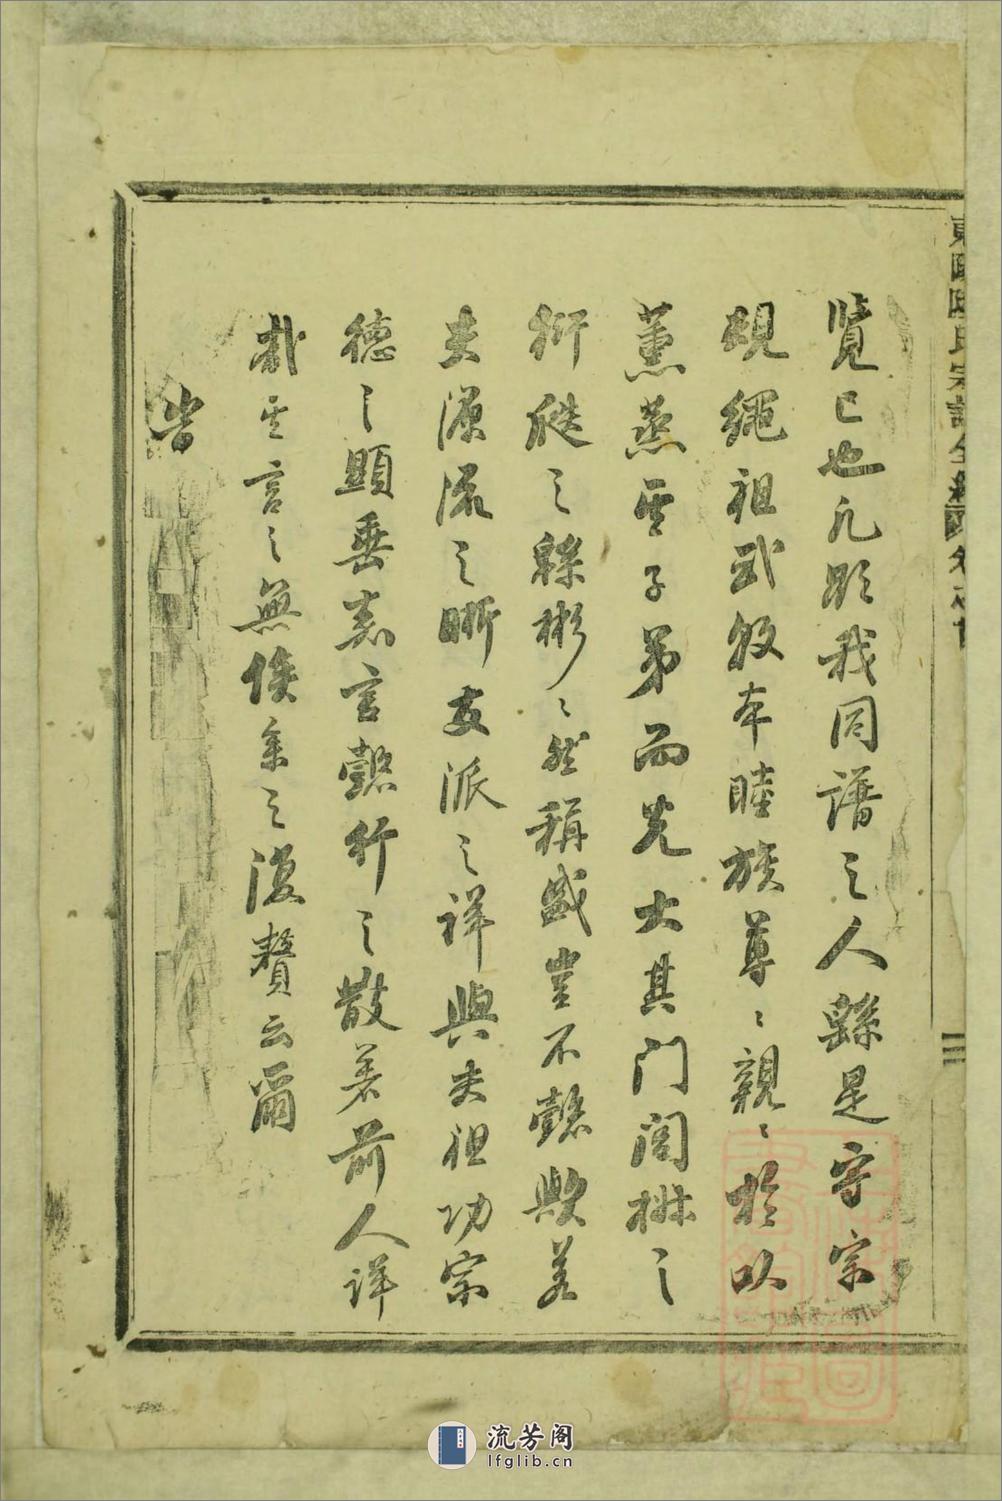 覽已也凡我同譜之人繇是守宗
規繩祖武敦本睦族尊〻親〻於以
薰蒸其子弟而光大其门閭椒之
衍瓞之緜彬〻然稱盛豈不懿歟若
夫源流之晰支派之詳與夫祖功宗
德之顯垂嘉言懿行之散著前人詳
哉其言之無俟余之復贅云爾
峕
流芳阁
lfglib.cn